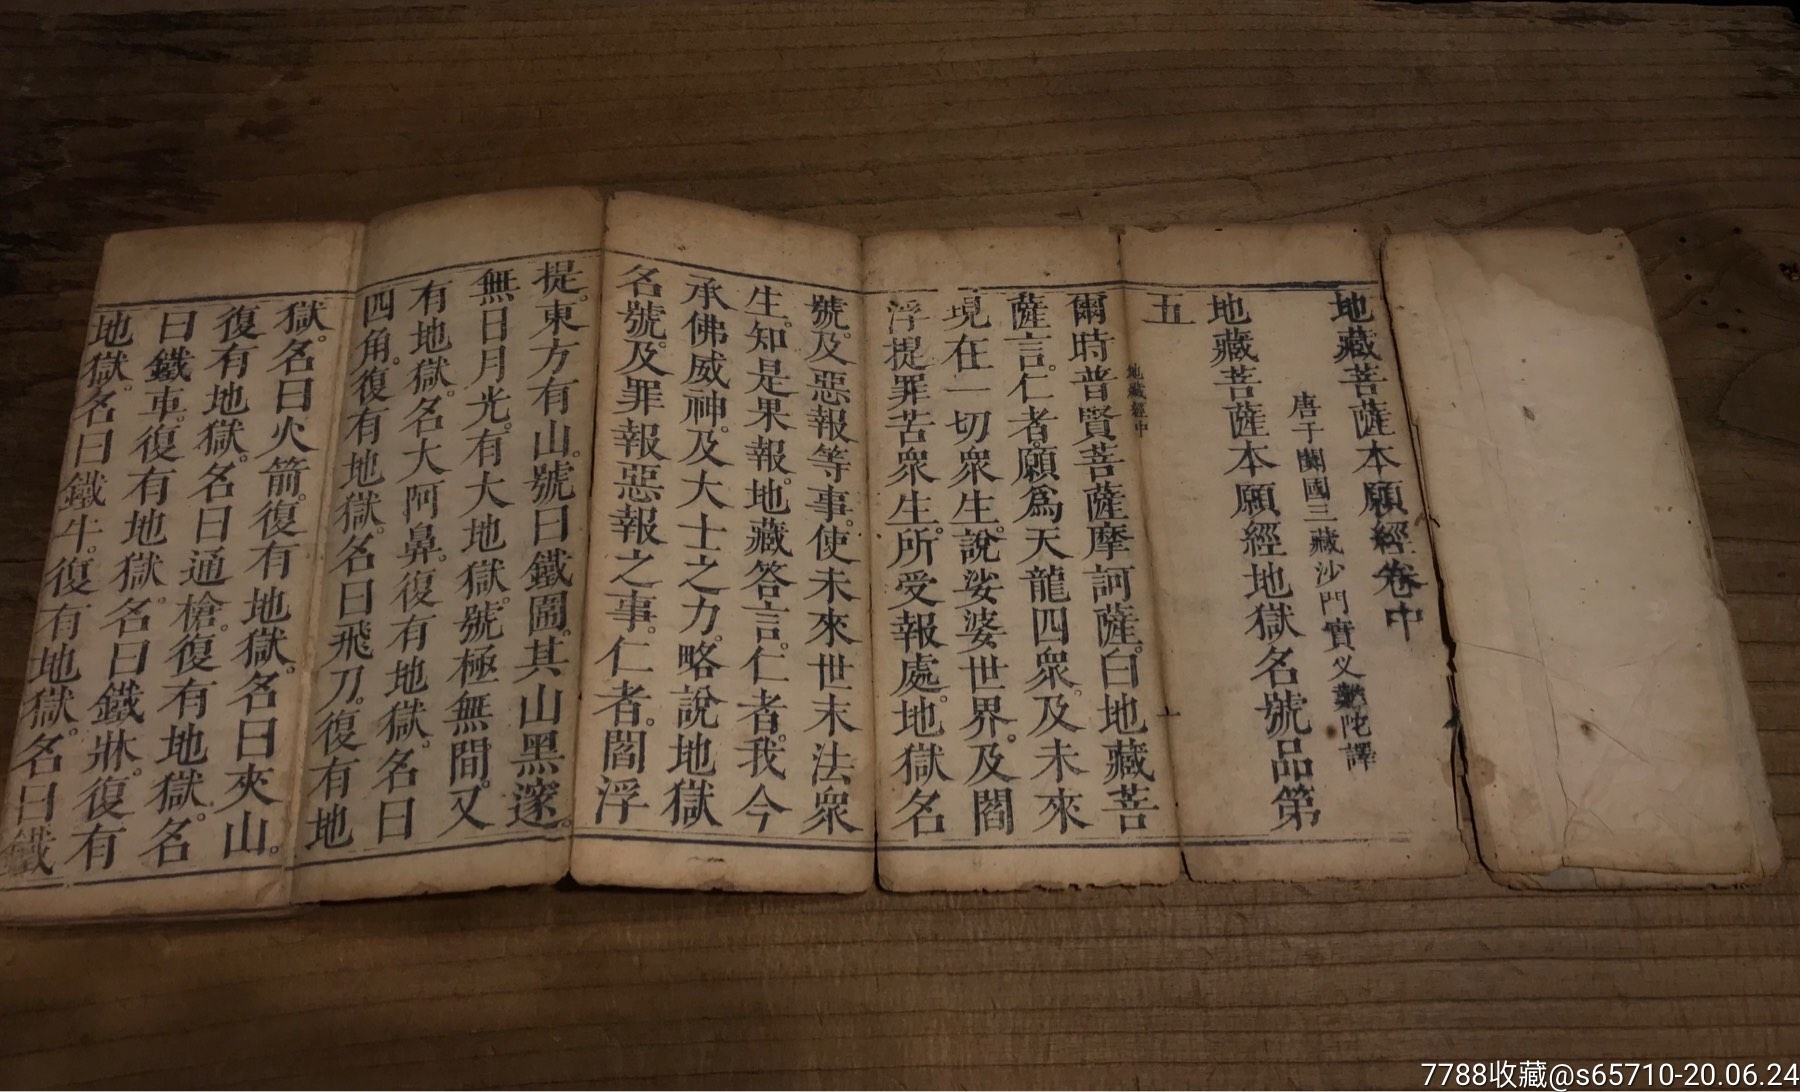 地藏菩薩本願經卷中
唐于闐國三藏沙門實叉難陀譯
地藏菩薩本願經地獄名號品第
五
地藏經中
十
爾時普賢菩薩摩訶薩。白地藏菩
薩言。仁者。願爲天龍四衆。及未來
現在一切衆生。說娑婆世界。及閻
浮提罪苦衆生。所受報處。地獄名
號。及惡報等事。使未來世末法衆
生。知是果報。地藏答言。仁者。我今
承佛威神。及大士之力。略說地獄
名號。及罪報惡報之事。仁者。閻浮
提。東方有山。號曰鐵圍。其山黑邃。
無日月光。有大地獄。號極無間。又
有地獄。名大阿鼻。復有地獄。名曰
四角。復有地獄。名曰飛刀。復有地
獄。名曰火箭。復有地獄。名曰夾山。
復有地獄。名曰通槍。復有地獄。名
曰鐵車。復有地獄。名曰鐵牀。復有
地獄。名曰鐵牛。復有地獄。名曰鐵
7788收藏@s65710-20.06.24